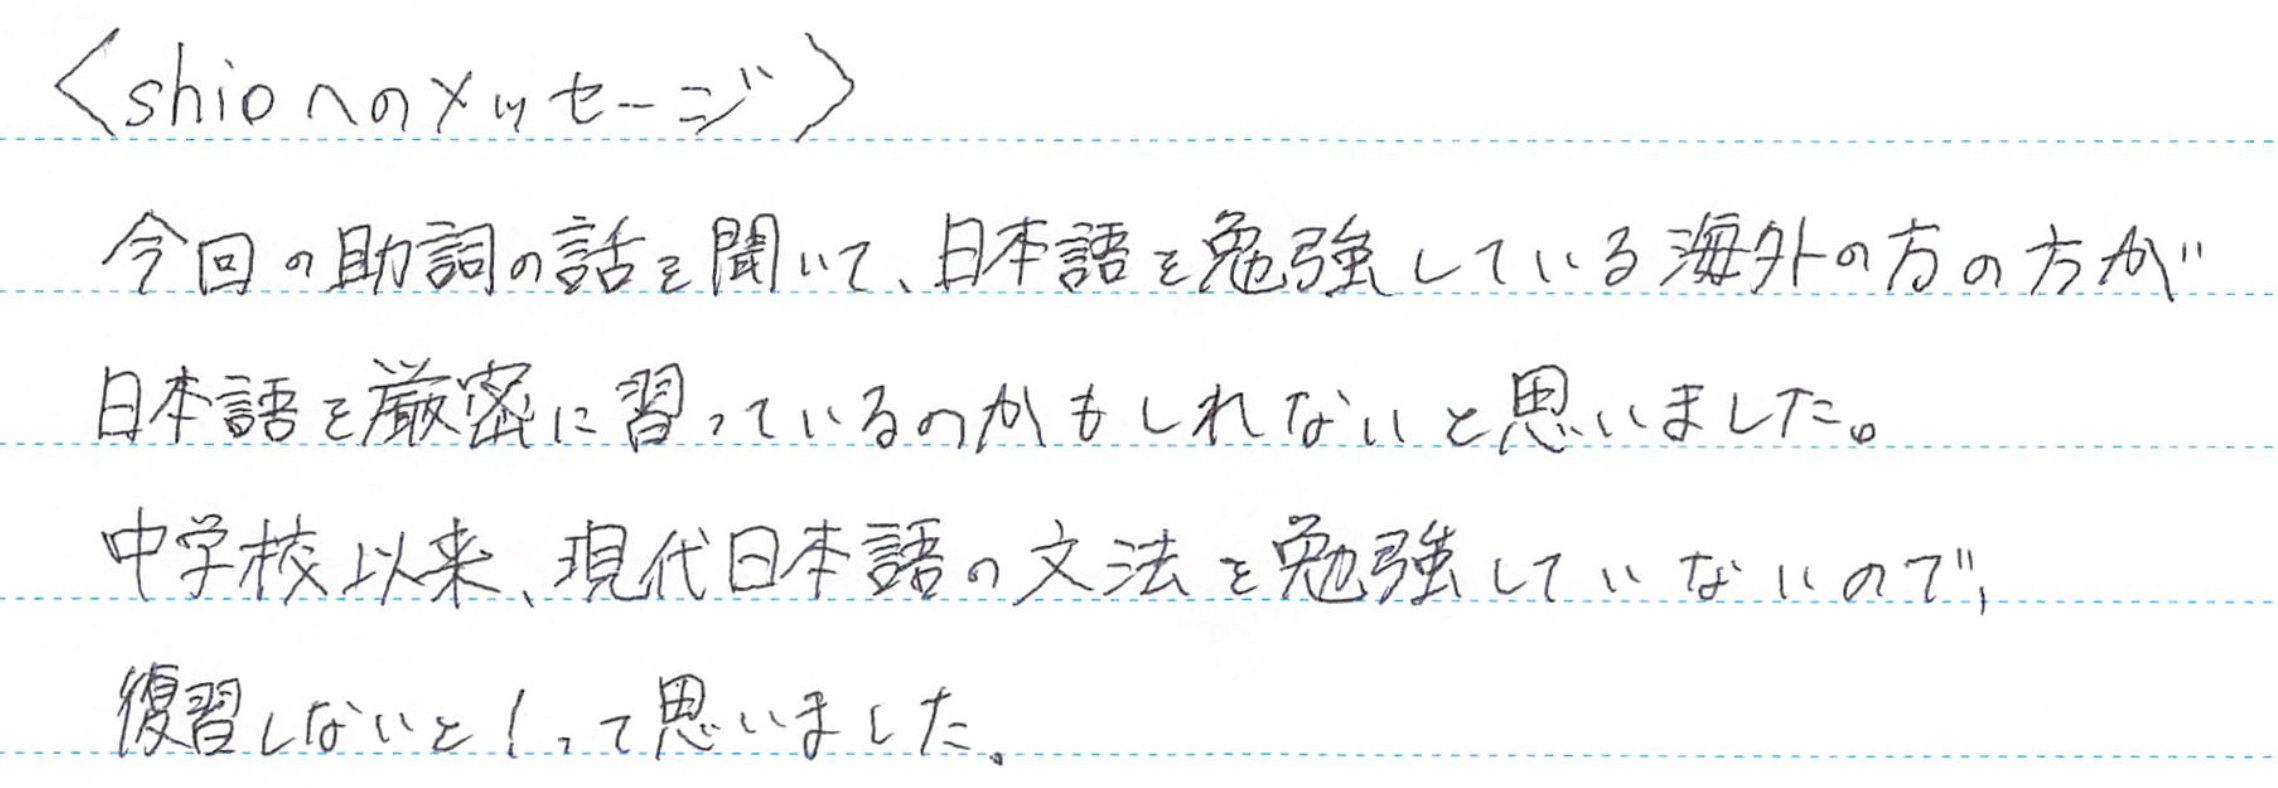 〈shioへのメッセージ〉
今回の助詞の話を聞いて、日本語を勉強している海外の方の方が
日本語を厳密に習っているのかもしれないと思いました。
中学校以来、現代日本語の文法を勉強していないので、
復習しないと!って思いました。